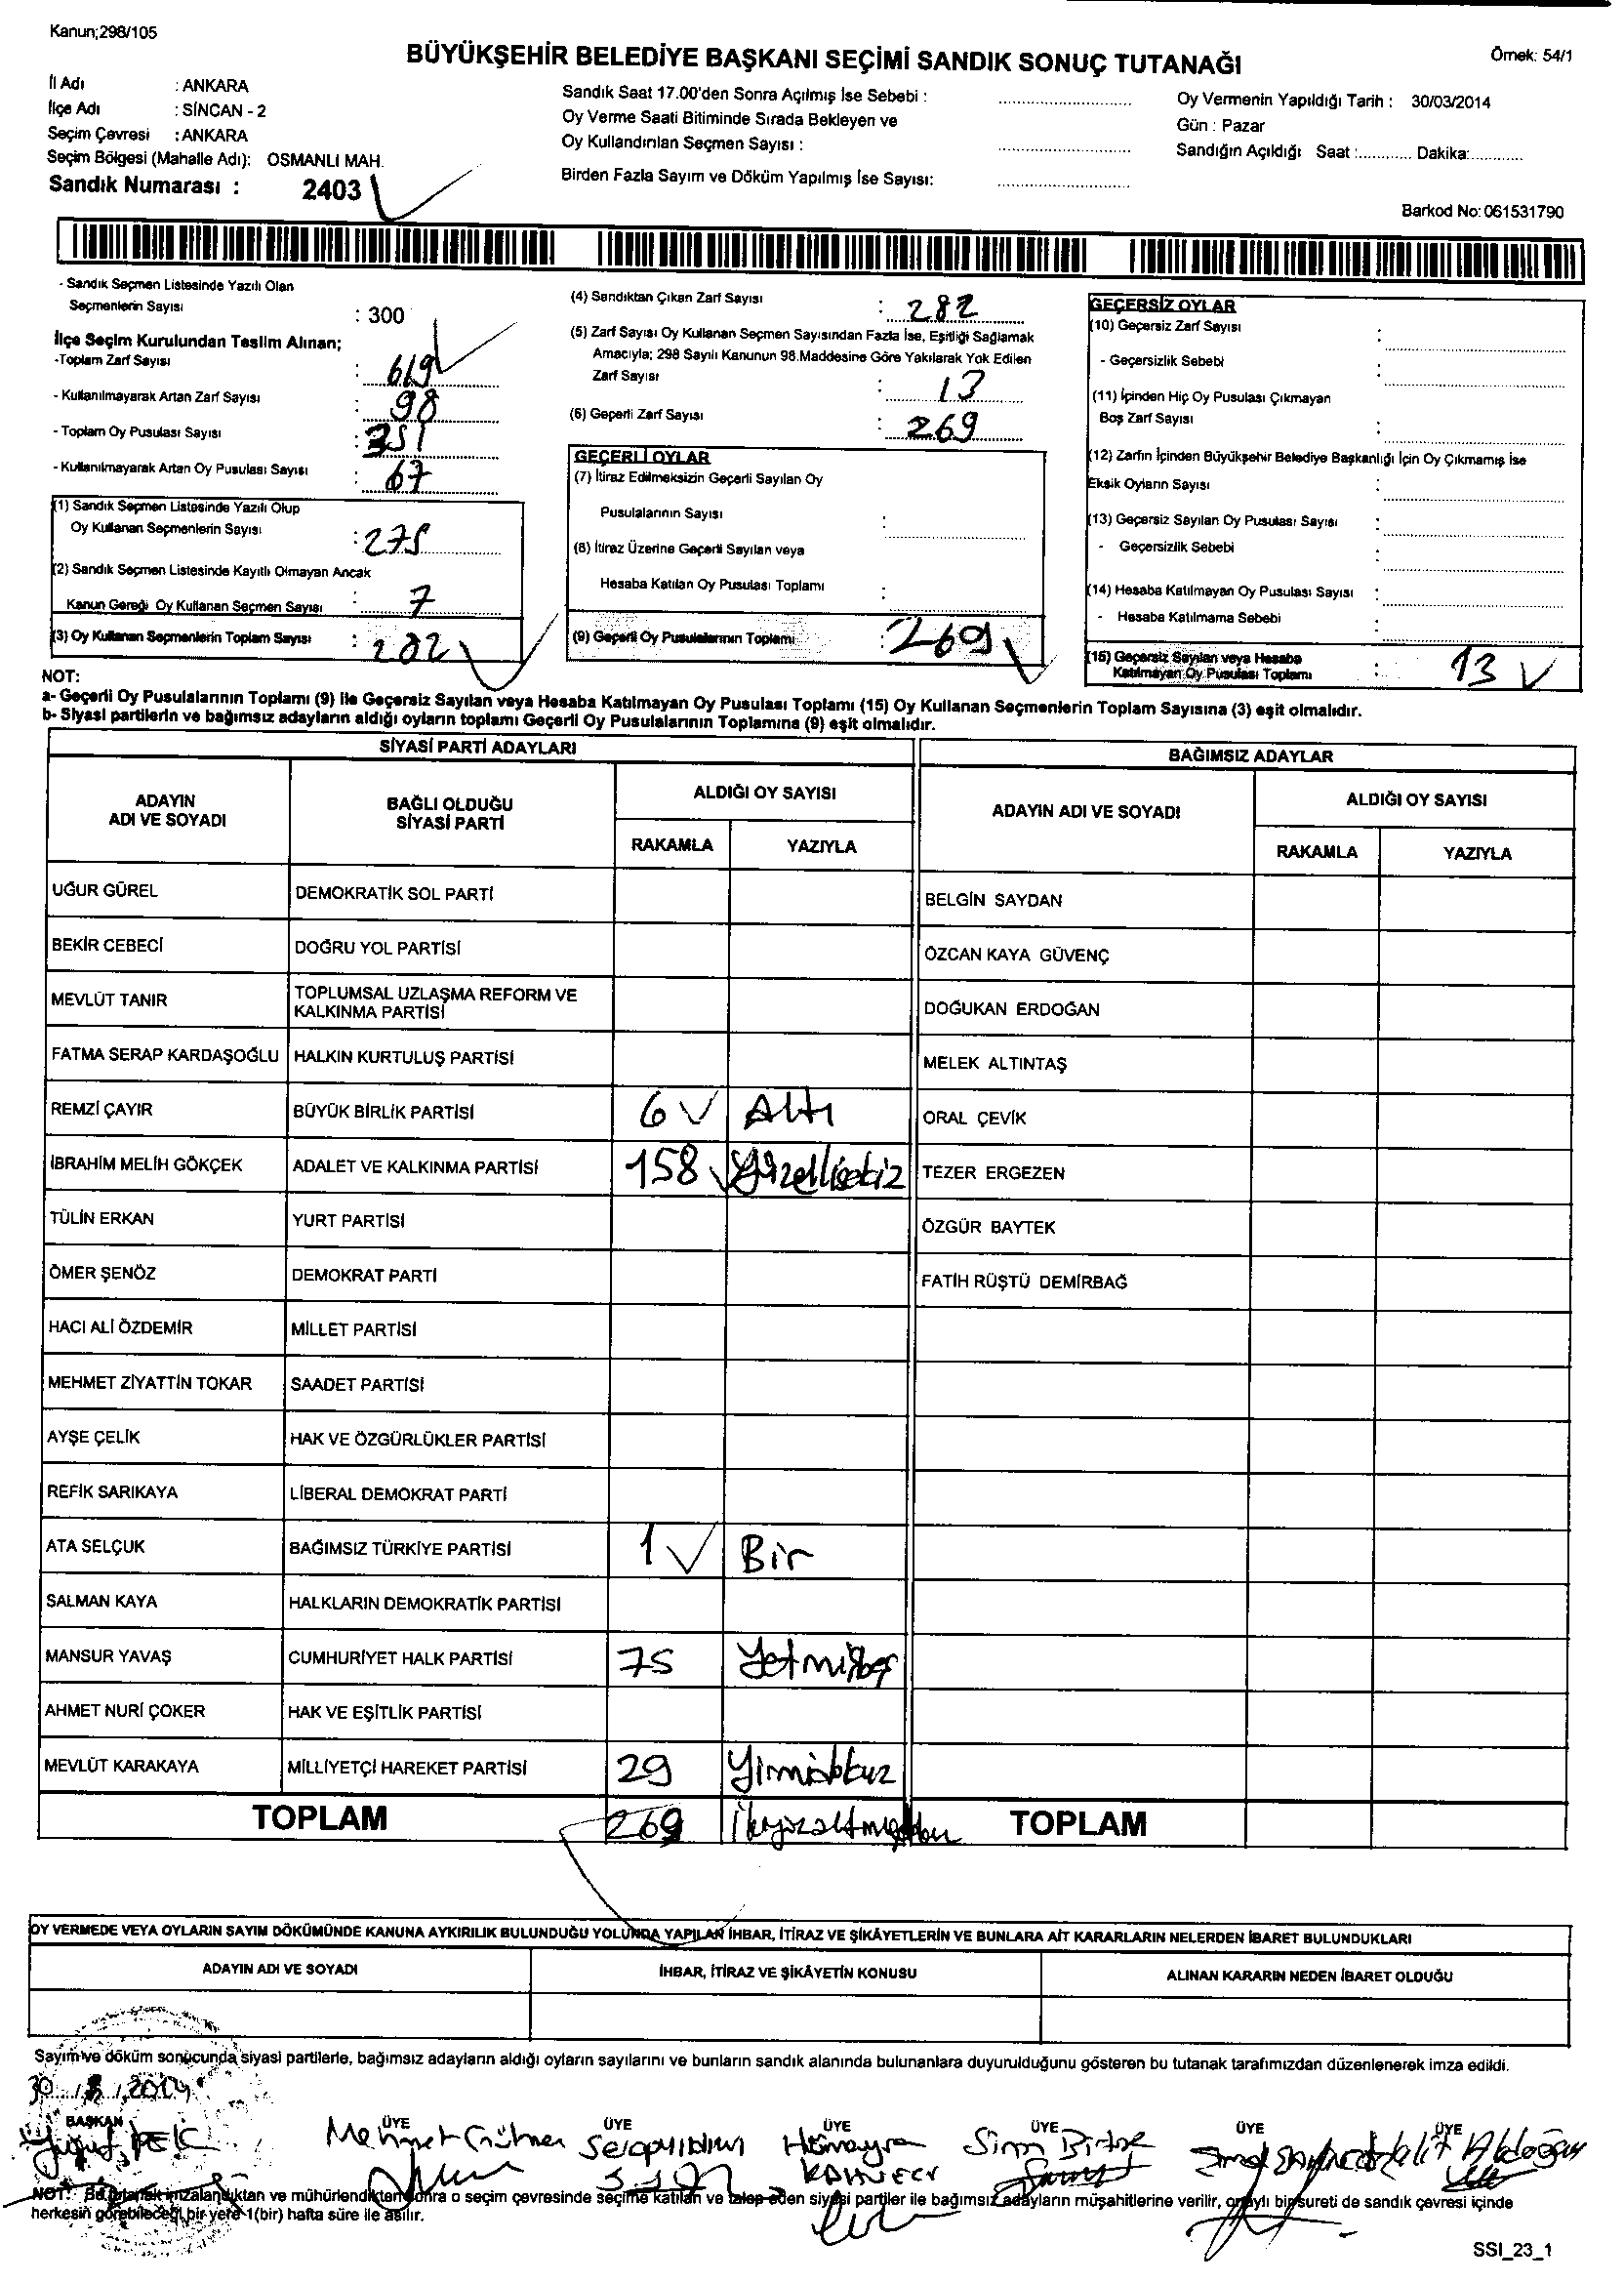 Kanun;298/105
BÜYÜKŞEHİR BELEDİYE BAŞKANI SEÇİMİ SANDIK SONUÇ TUTANAĞI
Örnek: 54/1
İl Adı : ANKARA
İlçe Adı : SİNCAN - 2
Seçim Çevresi : ANKARA
Seçim Bölgesi (Mahalle Adı): OSMANLI MAH.
Sandık Numarası : 2403
Sandık Saat 17.00'den Sonra Açılmış İse Sebebi :
Oy Verme Saati Bitiminde Sırada Bekleyen ve
Oy Kullandırılan Seçmen Sayısı :
Birden Fazla Sayım ve Döküm Yapılmış İse Sayısı:
Oy Vermenin Yapıldığı Tarih : 30/03/2014
Gün : Pazar
Sandığın Açıldığı Saat :............ Dakika:............
Barkod No: 061531790
- Sandık Seçmen Listesinde Yazılı Olan
Seçmenlerin Sayısı : 300
İlçe Seçim Kurulundan Teslim Alınan;
-Toplam Zarf Sayısı : 619
- Kullanılmayarak Artan Zarf Sayısı : 98
- Toplam Oy Pusulası Sayısı : 351
- Kullanılmayarak Artan Oy Pusulası Sayısı : 67
(1) Sandık Seçmen Listesinde Yazılı Olup
Oy Kullanan Seçmenlerin Sayısı : 275
(2) Sandık Seçmen Listesinde Kayıtlı Olmayan Ancak
Kanun Gereği Oy Kullanan Seçmen Sayısı : 7
(3) Oy Kullanan Seçmenlerin Toplam Sayısı : 282
(4) Sandıktan Çıkan Zarf Sayısı : 282
(5) Zarf Sayısı Oy Kullanan Seçmen Sayısından Fazla İse, Eşitliği Sağlamak
Amacıyla; 298 Sayılı Kanunun 98.Maddesine Göre Yakılarak Yok Edilen
Zarf Sayısı : 13
(6) Geçerli Zarf Sayısı : 269
GEÇERLİ OYLAR
(7) İtiraz Edilmeksizin Geçerli Sayılan Oy
Pusulalarının Sayısı :
(8) İtiraz Üzerine Geçerli Sayılan veya
Hesaba Katılan Oy Pusulası Toplamı :
(9) Geçerli Oy Pusulalarının Toplamı : 269
GEÇERSİZ OYLAR
(10) Geçersiz Zarf Sayısı :
- Geçersizlik Sebebi :
(11) İçinden Hiç Oy Pusulası Çıkmayan
Boş Zarf Sayısı :
(12) Zarfın İçinden Büyükşehir Belediye Başkanlığı İçin Oy Çıkmamış İse
Eksik Oyların Sayısı :
(13) Geçersiz Sayılan Oy Pusulası Sayısı :
- Geçersizlik Sebebi :
(14) Hesaba Katılmayan Oy Pusulası Sayısı :
- Hesaba Katılmama Sebebi :
(15) Geçersiz Sayılan veya Hesaba
Katılmayan Oy Pusulası Toplamı : 13
NOT:
a- Geçerli Oy Pusulalarının Toplamı (9) ile Geçersiz Sayılan veya Hesaba Katılmayan Oy Pusulası Toplamı (15) Oy Kullanan Seçmenlerin Toplam Sayısına (3) eşit olmalıdır.
b- Siyasi partilerin ve bağımsız adayların aldığı oyların toplamı Geçerli Oy Pusulalarının Toplamına (9) eşit olmalıdır.
SİYASİ PARTİ ADAYLARI
BAĞIMSIZ ADAYLAR
ADAYIN ADI VE SOYADI
BAĞLI OLDUĞU SİYASİ PARTİ
ALDIĞI OY SAYISI
RAKAMLA YAZIYLA
ADAYIN ADI VE SOYADI
ALDIĞI OY SAYISI
RAKAMLA YAZIYLA
UĞUR GÜREL DEMOKRATİK SOL PARTİ BELGİN SAYDAN
BEKİR CEBECİ DOĞRU YOL PARTİSİ ÖZCAN KAYA GÜVENÇ
MEVLÜT TANIR TOPLUMSAL UZLAŞMA REFORM VE KALKINMA PARTİSİ DOĞUKAN ERDOĞAN
FATMA SERAP KARDAŞOĞLU HALKIN KURTULUŞ PARTİSİ MELEK ALTINTAŞ
REMZİ ÇAYIR BÜYÜK BİRLİK PARTİSİ 6 Altı ORAL ÇEVİK
İBRAHİM MELİH GÖKÇEK ADALET VE KALKINMA PARTİSİ 158 yüzellisekiz TEZER ERGEZEN
TÜLİN ERKAN YURT PARTİSİ ÖZGÜR BAYTEK
ÖMER ŞENÖZ DEMOKRAT PARTİ FATİH RÜŞTÜ DEMİRBAĞ
HACI ALİ ÖZDEMİR MİLLET PARTİSİ
MEHMET ZİYATTİN TOKAR SAADET PARTİSİ
AYŞE ÇELİK HAK VE ÖZGÜRLÜKLER PARTİSİ
REFİK SARIKAYA LİBERAL DEMOKRAT PARTİ
ATA SELÇUK BAĞIMSIZ TÜRKİYE PARTİSİ 1 Bir
SALMAN KAYA HALKLARIN DEMOKRATİK PARTİSİ
MANSUR YAVAŞ CUMHURİYET HALK PARTİSİ 75 Yetmişbeş
AHMET NURİ ÇOKER HAK VE EŞİTLİK PARTİSİ
MEVLÜT KARAKAYA MİLLİYETÇİ HAREKET PARTİSİ 29 Yirmidokuz
TOPLAM 269 İkiyüzaltmışdokuz TOPLAM
OY VERMEDE VEYA OYLARIN SAYIM DÖKÜMÜNDE KANUNA AYKIRILIK BULUNDUĞU YOLUNDA YAPILAN İHBAR, İTİRAZ VE ŞİKÂYETLERİN VE BUNLARA AİT KARARLARIN NELERDEN İBARET BULUNDUKLARI
ADAYIN ADI VE SOYADI İHBAR, İTİRAZ VE ŞİKÂYETİN KONUSU ALINAN KARARIN NEDEN İBARET OLDUĞU
Sayım ve döküm sonucunda siyasi partilerle, bağımsız adayların aldığı oyların sayılarını ve bunların sandık alanında bulunanlara duyurulduğunu gösteren bu tutanak tarafımızdan düzenlenerek imza edildi.
30 / 3 / 2014
BAŞKAN ÜYE ÜYE ÜYE ÜYE ÜYE ÜYE
Mehmet Hümeyra
NOT: Bu tutanak imzalandıktan ve mühürlendikten sonra o seçim çevresinde seçime katılan ve talep eden siyasi partiler ile bağımsız adayların müşahitlerine verilir, onaylı bir sureti de sandık çevresi içinde
herkesin görebileceği bir yere 1(bir) hafta süre ile asılır.
SSI_23_1